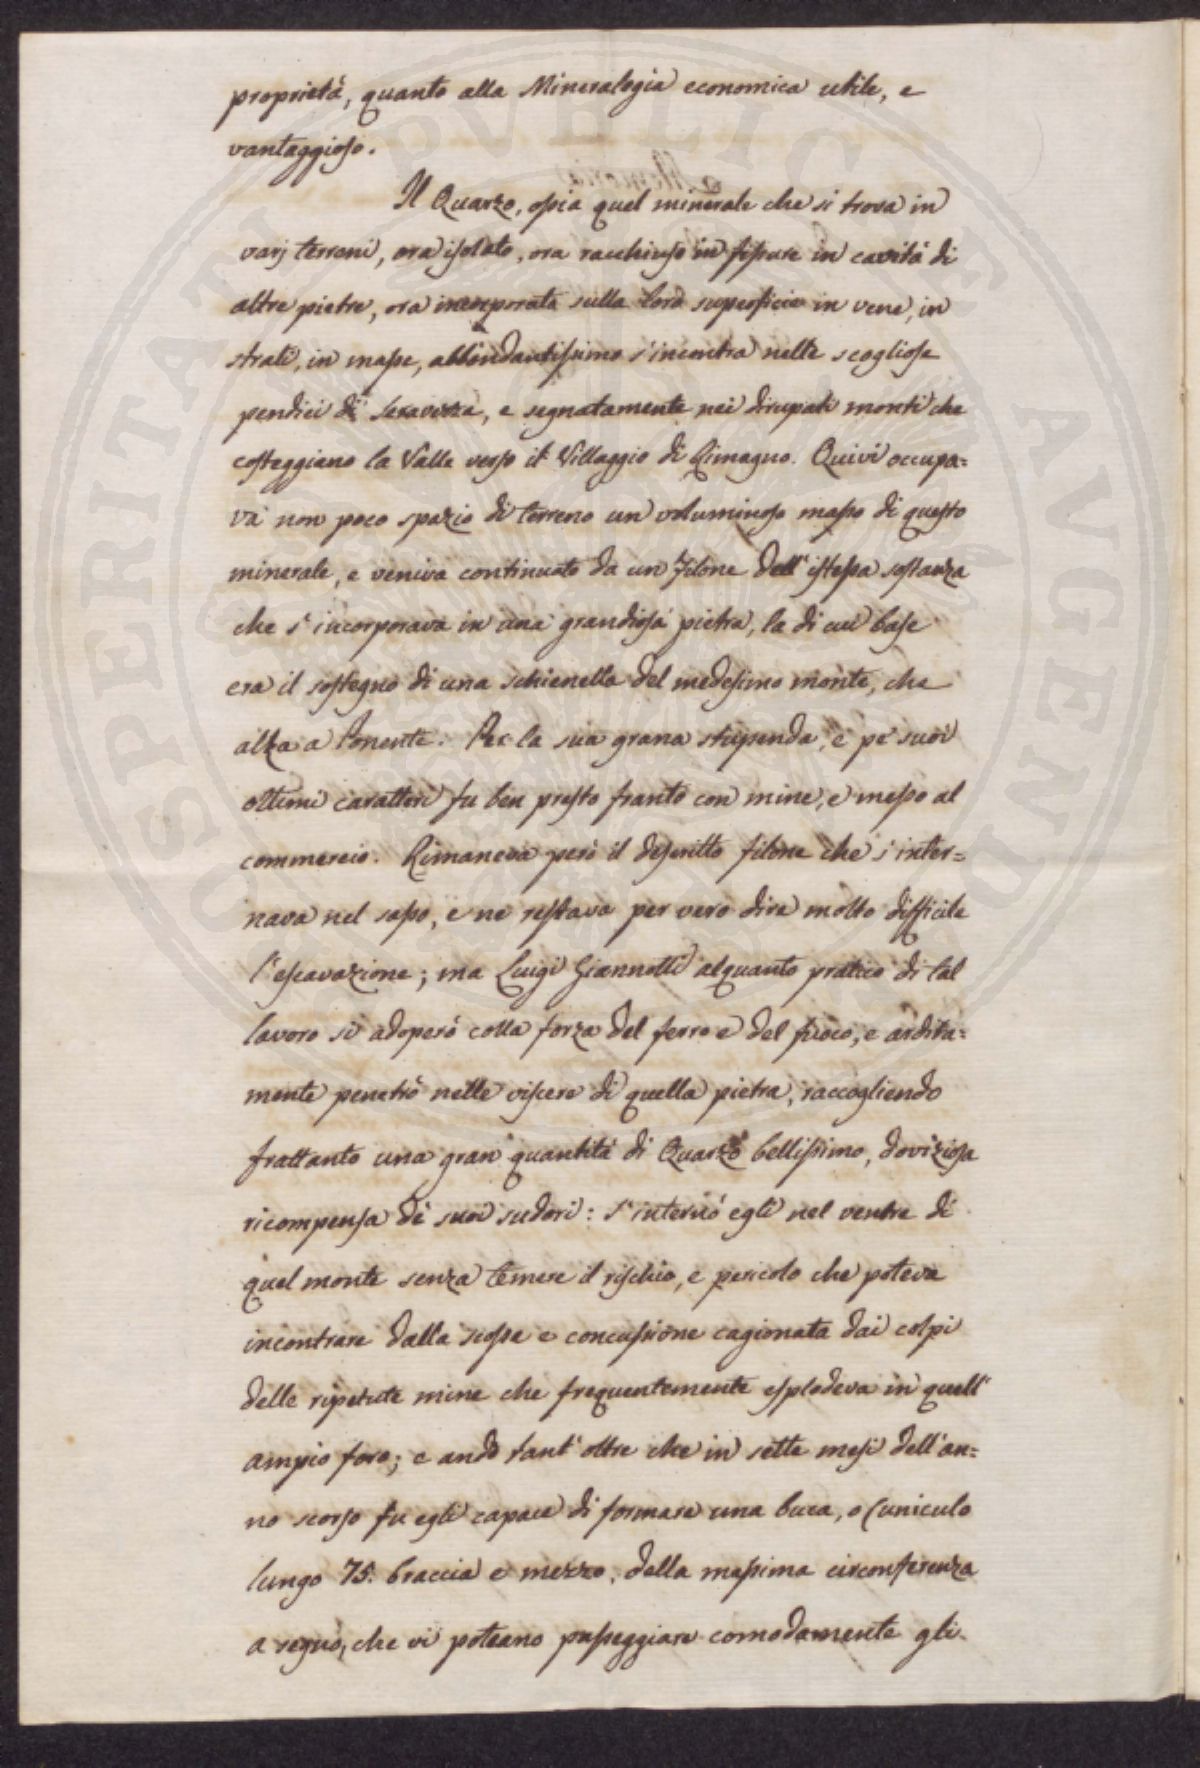 proprietà, quanto alla Mineralogia economica utile, e
vantaggioso.
Il Quarzo, ossia quel minerale che si trova in
varj terreni, ora isolato, ora racchiuso in fissure in cavità di
altre pietre, ora incorporato sulla loro superficie in vene, in
strati, in masse, abbondantissimo s'incontra nelle scogliose
pendici di Seravezza, e segnatamente nei dirupati monti che
costeggiano la Valle verso il Villaggio di Rimagno. Quivi occupa=
va non poco spazio di terreno un voluminoso masso di questo
minerale, e veniva continuato da un Filone dell'istessa sostanza
che s'incorporava in una grandiosa pietra, la di cui base
era il sostegno di una schienella del medesimo monte, che
alza a Ponente. Per la sua grana stupenda, e pe' suoi
ottimi caratteri fu ben presto franto con mine, e messo al
commercio. Rimaneva però il descritto filone che s'inter=
nava nel sasso, e ne restava per vero dire molto difficile
l'escavazione; ma Luigi Giannotti alquanto pratico di tal
lavoro si adoperò colla forza del ferro e del fuoco, e ardita=
mente penetrò nelle viscere di quella pietra, raccogliendo
frattanto una gran quantità di Quarzo bellissimo, doviziosa
ricompensa de' suoi sudori: s'internò egli nel ventre di
quel monte senza temere il rischio, e pericolo che poteva
incontrare dalla scossa e concussione cagionata dai colpi
delle ripetute mine che frequentemente esplodeva in quell'
ampio foro; e andò tant'oltre che in sette mesi dell'an=
no scorso fu egli capace di formare una buca, o Cuniculo
lungo 75. braccia e mezzo, della massima circonferenza
a segno, che vi poteano passeggiare comodamente gli
PROSPERITATI PUBLICAE AUGENDAE